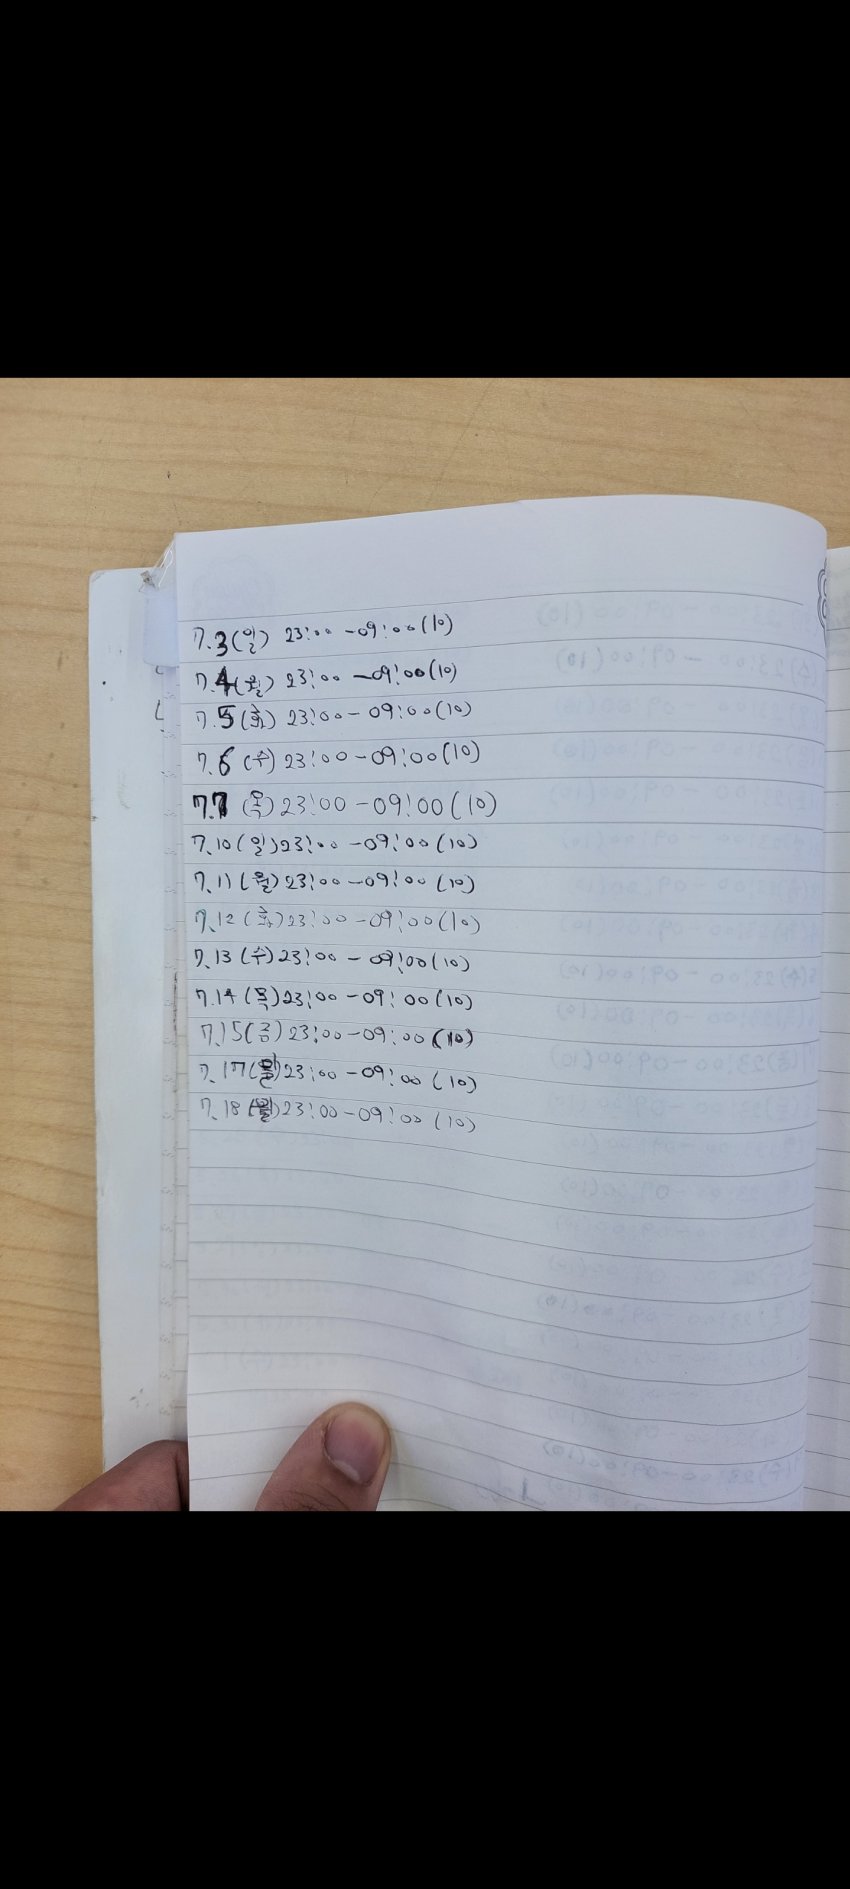 7.3(일) 23:00-09:00(10)
7.4(월) 23:00-09:00(10)
7.5(화) 23:00-09:00(10)
7.6(수) 23:00-09:00(10)
7.7(목) 23:00-09:00(10)
7.10(일) 23:00-09:00(10)
7.11(월) 23:00-09:00(10)
7.12(화) 23:00-09:00(10)
7.13(수) 23:00-09:00(10)
7.14(목) 23:00-09:00(10)
7.15(금) 23:00-09:00(10)
7.17 23:00-09:00(10)
7.18(월) 23:00-09:00(10)